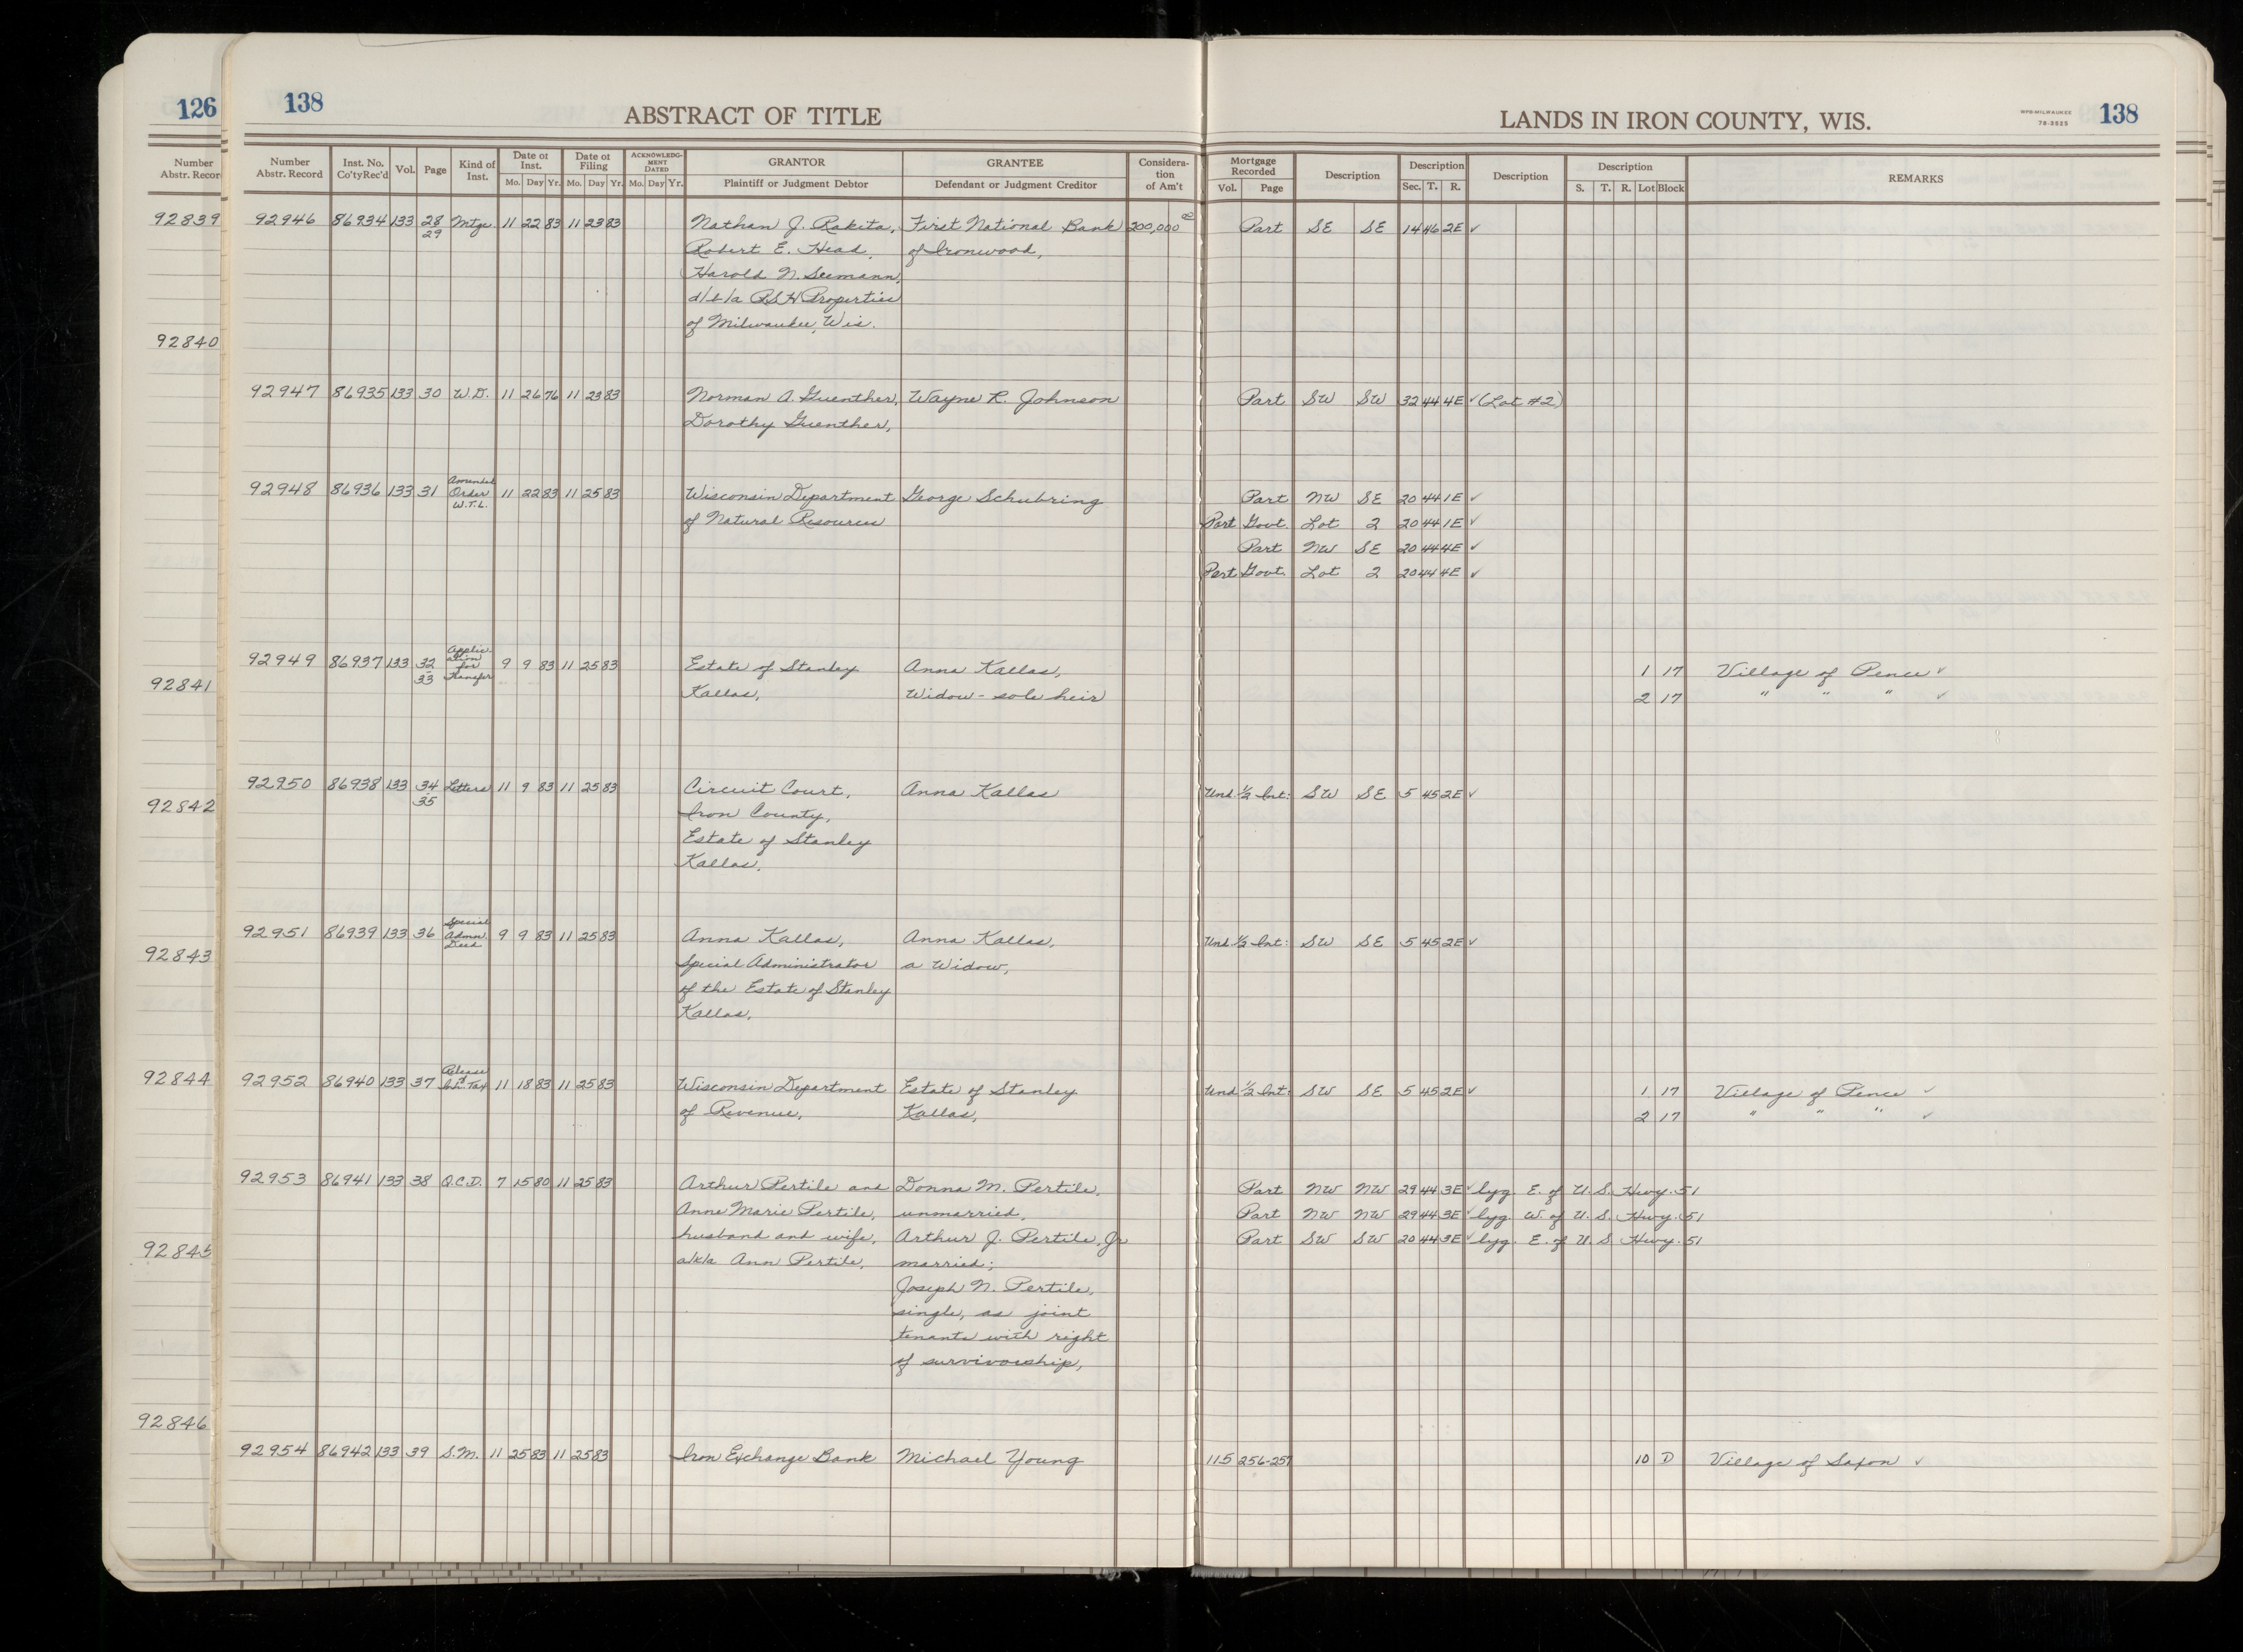 126
138
ABSTRACT OF TITLE
LANDS IN IRON COUNTY, WIS.
WPB-MILWAUKEE
78-3525
138
Number
Abstr. Record
Number Abstr. Record
Inst. No. Co'tyRec'd
Vol.
Page
Kind of Inst.
Date of Inst.
Mo. Day Yr.
Date of Filing
Mo. Day Yr.
ACKNOWLEDG-MENT DATED
Mo. Day Yr.
GRANTOR
Plaintiff or Judgment Debtor
GRANTEE
Defendant or Judgment Creditor
Considera-tion of Am't
Mortgage Recorded
Vol. Page
Description
Description
Sec. T. R.
Description
Description
S. T. R. Lot Block
REMARKS
92839
92840
92841
92842
92843
92844
92845
92846
92946 86934 133 28 Mtge. 11 22 83 11 23 83 Nathan J. Rakita, First National Bank 200,000 00 Part SE SE 14 46 2E ✓
29 Robert E. Head, of Ironwood,
Harold N. Seemann,
d/b/a RSH Properties
of Milwaukee, Wis.
92947 86935 133 30 W.D. 11 26 76 11 23 83 Norman A. Guenther, Wayne R. Johnson Part SW SW 32 44 4E ✓ (Lot #2)
Dorothy Guenther,
92948 86936 133 31 Amended Order W.T.L. 11 22 83 11 25 83 Wisconsin Department George Schubring Part NW SE 20 44 1E ✓
of Natural Resources Part Govt. Lot 2 20 44 1E ✓
Part NW SE 20 44 4E ✓
Part Govt. Lot 2 20 44 4E ✓
92949 86937 133 32 Applic-ation for Transfer 9 9 83 11 25 83 Estate of Stanley Anna Kallas, 1 17 Village of Pence ✓
33 Kallas, Widow - sole heir 2 17 " " " ✓
92950 86938 133 34 Letters 11 9 83 11 25 83 Circuit Court, Anna Kallas Und. 1/2 Int: SW SE 5 45 2E ✓
35 Iron County,
Estate of Stanley
Kallas,
92951 86939 133 36 Special Admn. Deed 9 9 83 11 25 83 Anna Kallas, Anna Kallas, Und. 1/2 Int: SW SE 5 45 2E ✓
Special Administrator a Widow,
of the Estate of Stanley
Kallas,
92952 86940 133 37 Release Tax 11 18 83 11 25 83 Wisconsin Department Estate of Stanley Und. 1/2 Int: SW SE 5 45 2E ✓ 1 17 Village of Pence ✓
of Revenue, Kallas, 2 17 " " " ✓
92953 86941 133 38 Q.C.D. 7 15 80 11 25 83 Arthur Pertile and Donna M. Pertile, Part NW NW 29 44 3E ✓ lyg. E. of U. S. Hwy. 51
Anne Marie Pertile, unmarried, Part NW NW 29 44 3E ✓ lyg. W. of U. S. Hwy. 51
husband and wife, Arthur J. Pertile, Jr Part SW SW 20 44 3E ✓ lyg. E. of U. S. Hwy. 51
a/k/a Ann Pertile, married;
Joseph N. Pertile,
single, as joint
tenants with right
of survivorship,
92954 86942 133 39 S.M. 11 25 83 11 25 83 Iron Exchange Bank Michael Young 115 256-257 10 D Village of Saxon ✓